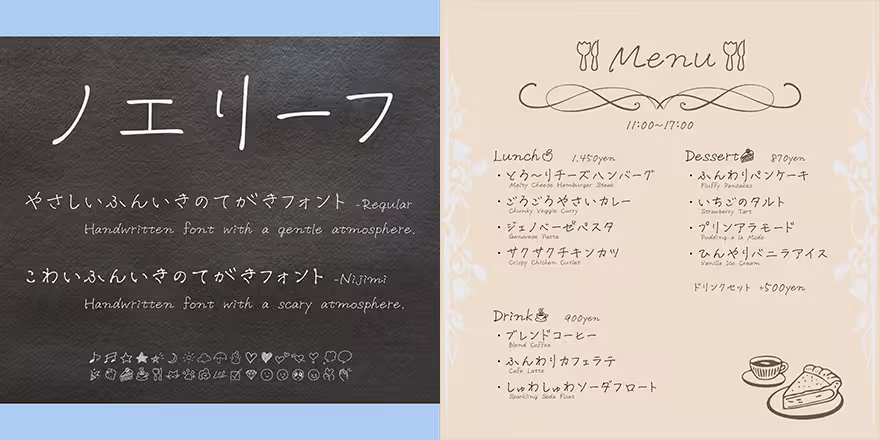 ノエリーフ
やさしいふんいきのてがきフォント -Regular
Handwritten font with a gentle atmosphere.
こわいふんいきのてがきフォント -Nijimi
Handwritten font with a scary atmosphere.
Menu
11:00~17:00
Lunch 1.450yen
・とろ~りチーズハンバーグ
Melty Cheese Hamburger Steak
・ごろごろやさいカレー
Chunky Veggie Curry
・ジェノベーゼパスタ
Genovese Pasta
・サクサクチキンカツ
Crispy Chicken Cutlet
Drink 900yen
・ブレンドコーヒー
Blend Coffee
・ふんわりカフェラテ
Cafe Latte
・しゅわしゅわソーダフロート
Sparkling Soda Float
Dessert 870yen
・ふんわりパンケーキ
Fluffy Pancakes
・いちごのタルト
Strawberry Tart
・プリンアラモード
Pudding a la Mode
・ひんやりバニラアイス
Vanilla Ice Cream
ドリンクセット +500yen